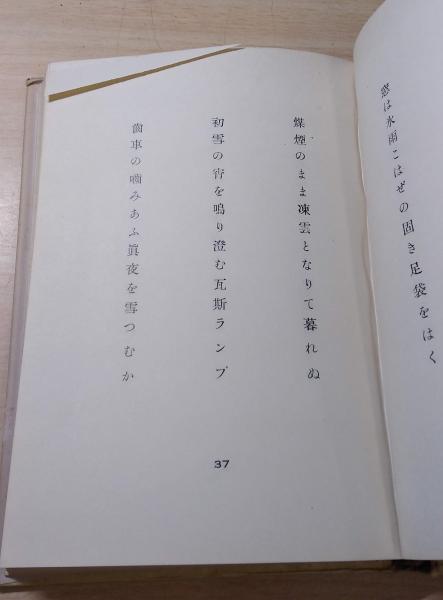 窓は氷雨こはぜの固き足袋をはく
煤煙のまま凍雲となりて暮れぬ
初雪の宵を鳴り澄む瓦斯ランプ
齒車の噛みあふ眞夜を雪つむか
37